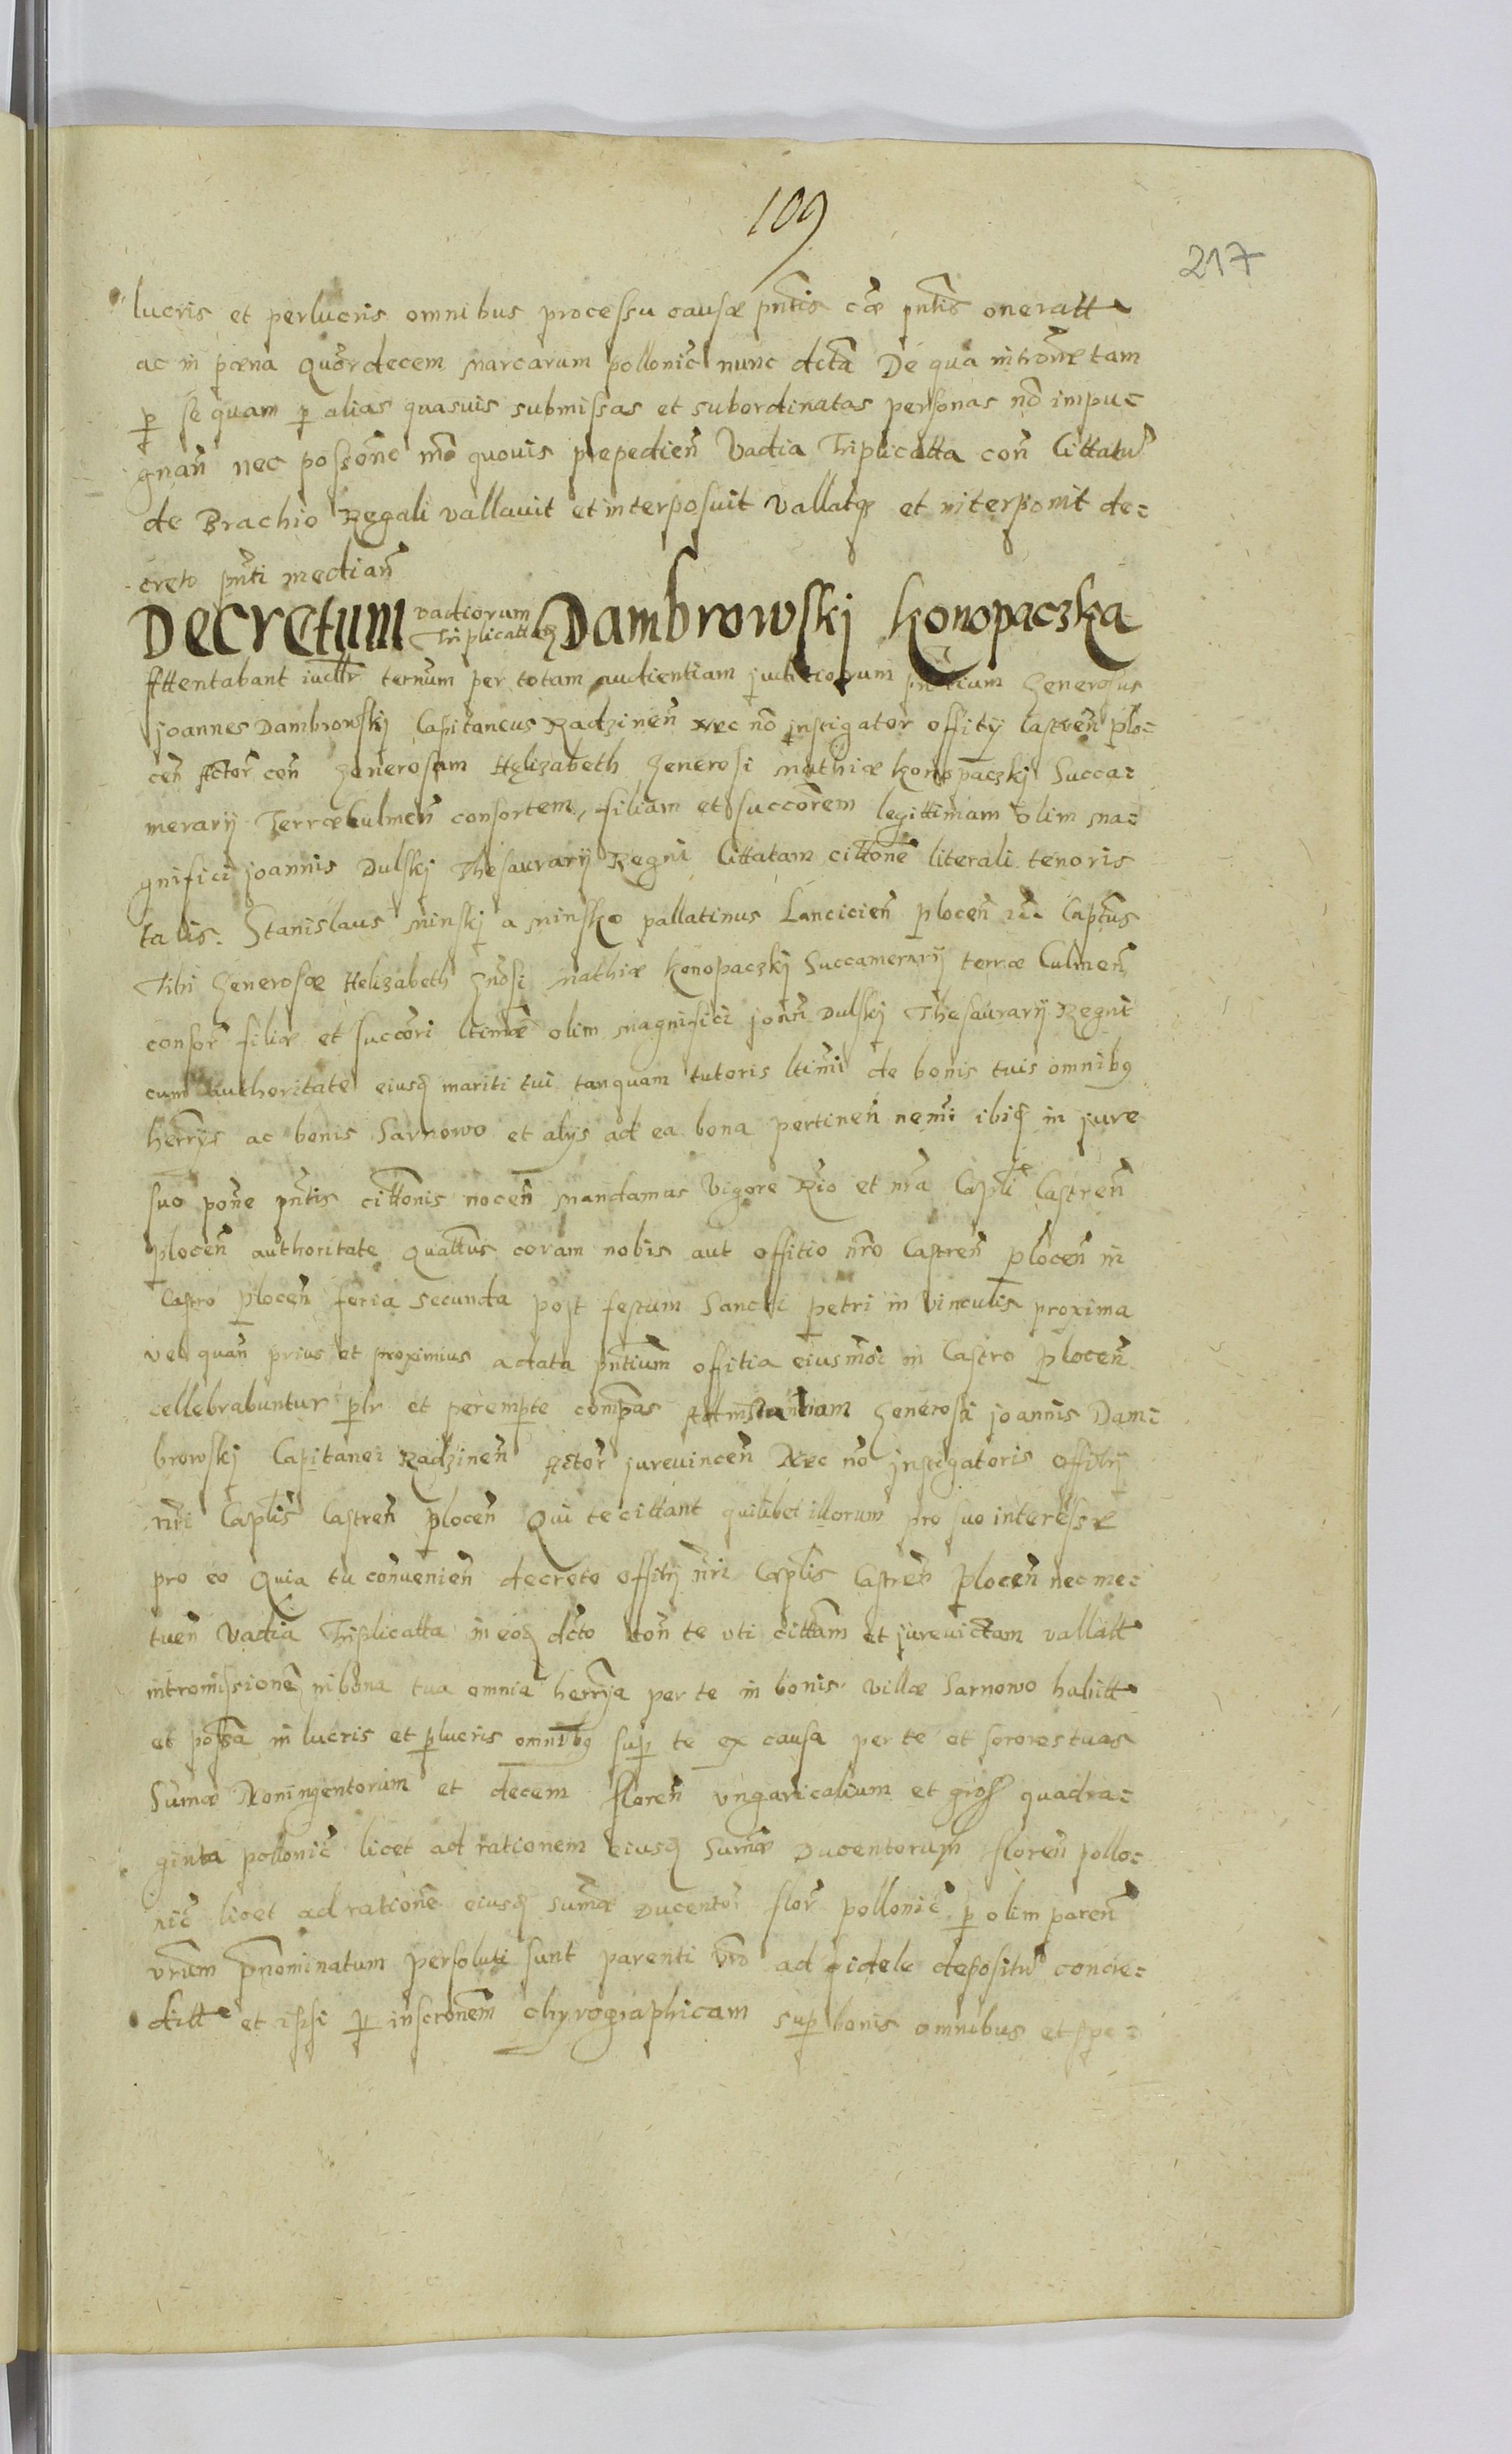 109
217
lucris et perlucris omnibus processu causæ pntis cæ pntis oneratt
ac in pœna Quordecem marcarum pollonic nunc dcta De qua introne tam
p se quam p alias quasvis submissas et subordinatas personas no impu=
gnan nec possone mo quovis prepedien Vadia Triplicatta con Cittatu
de Brachio Regali vallavit et interposuit Vallatq et interponit de=
creto pnti median
Decretum vadiorum Triplicattor Dambrowskj Konopaczka
Attentabant iudlr ternum per totam audientiam judiciorum pntium Generosus
joannes Dambrowskj Capitaneus Radzinen Nec no jnstigator offitij Castren plo=
cen Actor con Generosam Helizabeth Generosi Mathiæ Konopaczkj Succa=
merarij Terræ Culmen consortem, filiam et succorem legittimam olim ma=
gnifici joannis Dulskj Thesaurarij Regni Cittatam cittone literali tenoris
talis. Stanislaus Minskj a Minsko pallatinus Lancicien plocen Captneus
Tibi Generosæ Helizabeth Gnosi Mathiæ Konopaczkj Succamerarij terræ Culmen
consor filiæ et succori ltimæ olim Magnifici joan Dulskj Thesaurarij Regni
cum authoritate eiusq mariti tui tanquam tutoris ltimi de bonis tuis omnibq
herrijs ac bonis Sarnowo et alijs ad ea bona pertinen nemi ibiq in jure
suo pone pntis cittonis nocen Mandamus Vigore Rio et nra Capli Castren
plocen authoritate Quattus coram nobis aut offitio nro Castren plocen in
Castro plocen feria secunda post festum Sancti petri in vinculis proxima
vel quan prius et proximius actata pntium offitia eiusmoi in Castro plocen
cellebrabuntur plr et perempte compas Ad instantiam Generosi joannis Dam=
browskj Capitanei Radzinen Actor jurevincen Nec no jnstigatoris offitij
nri Caplis Castren plocen Qui te cittant quilibet illorum pro suo interesse
pro eo Quia tu convenien decreto offitij nri Caplis Castren plocen nec me=
tuen Vadia Triplicatta in eoq dcto con te uti cittam et jurevictam vallatt
intromissionem in bona tua omnia herrija per te in bonis villæ Sarnowo habitt
et possa in lucris et plucris omnibq sup te ex causa per te et sorores tuas
Sumæ Noningentorum et decem floren ungaricalium et gross quadra=
ginta pollonic licet ad rationem eiusq Sumæ Ducentorum floren pollo=
nic licet ad ratione eiusq sumæ Ducentor flor pollonic p olim paren
vrum pnominatum persoluti sunt parenti vro ad fidele depositu concre=
ditt et ipsi p inscronem chyrographicam sup bonis omnibus et spe=